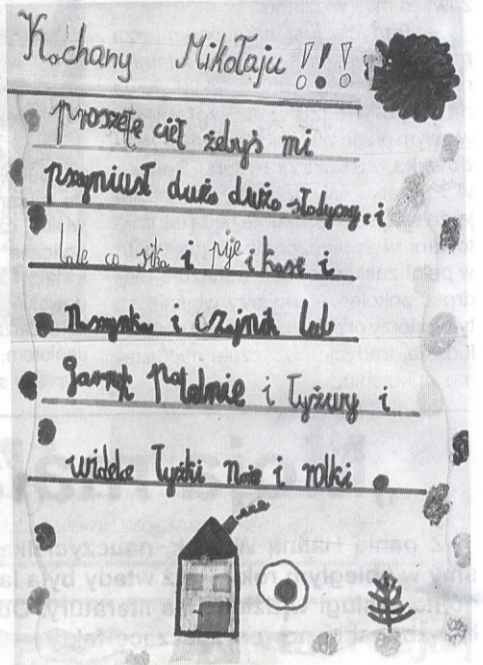 Kochany Mikołaju !!!
proszęłe cieł żebyś mi
pszyniusł dużo dużo słodyczy. i
lale co sika i pije i kase i
maszynke i czajnik lub
garnek patelnie i łyżwy i
widelce łyżki noże i rolki.